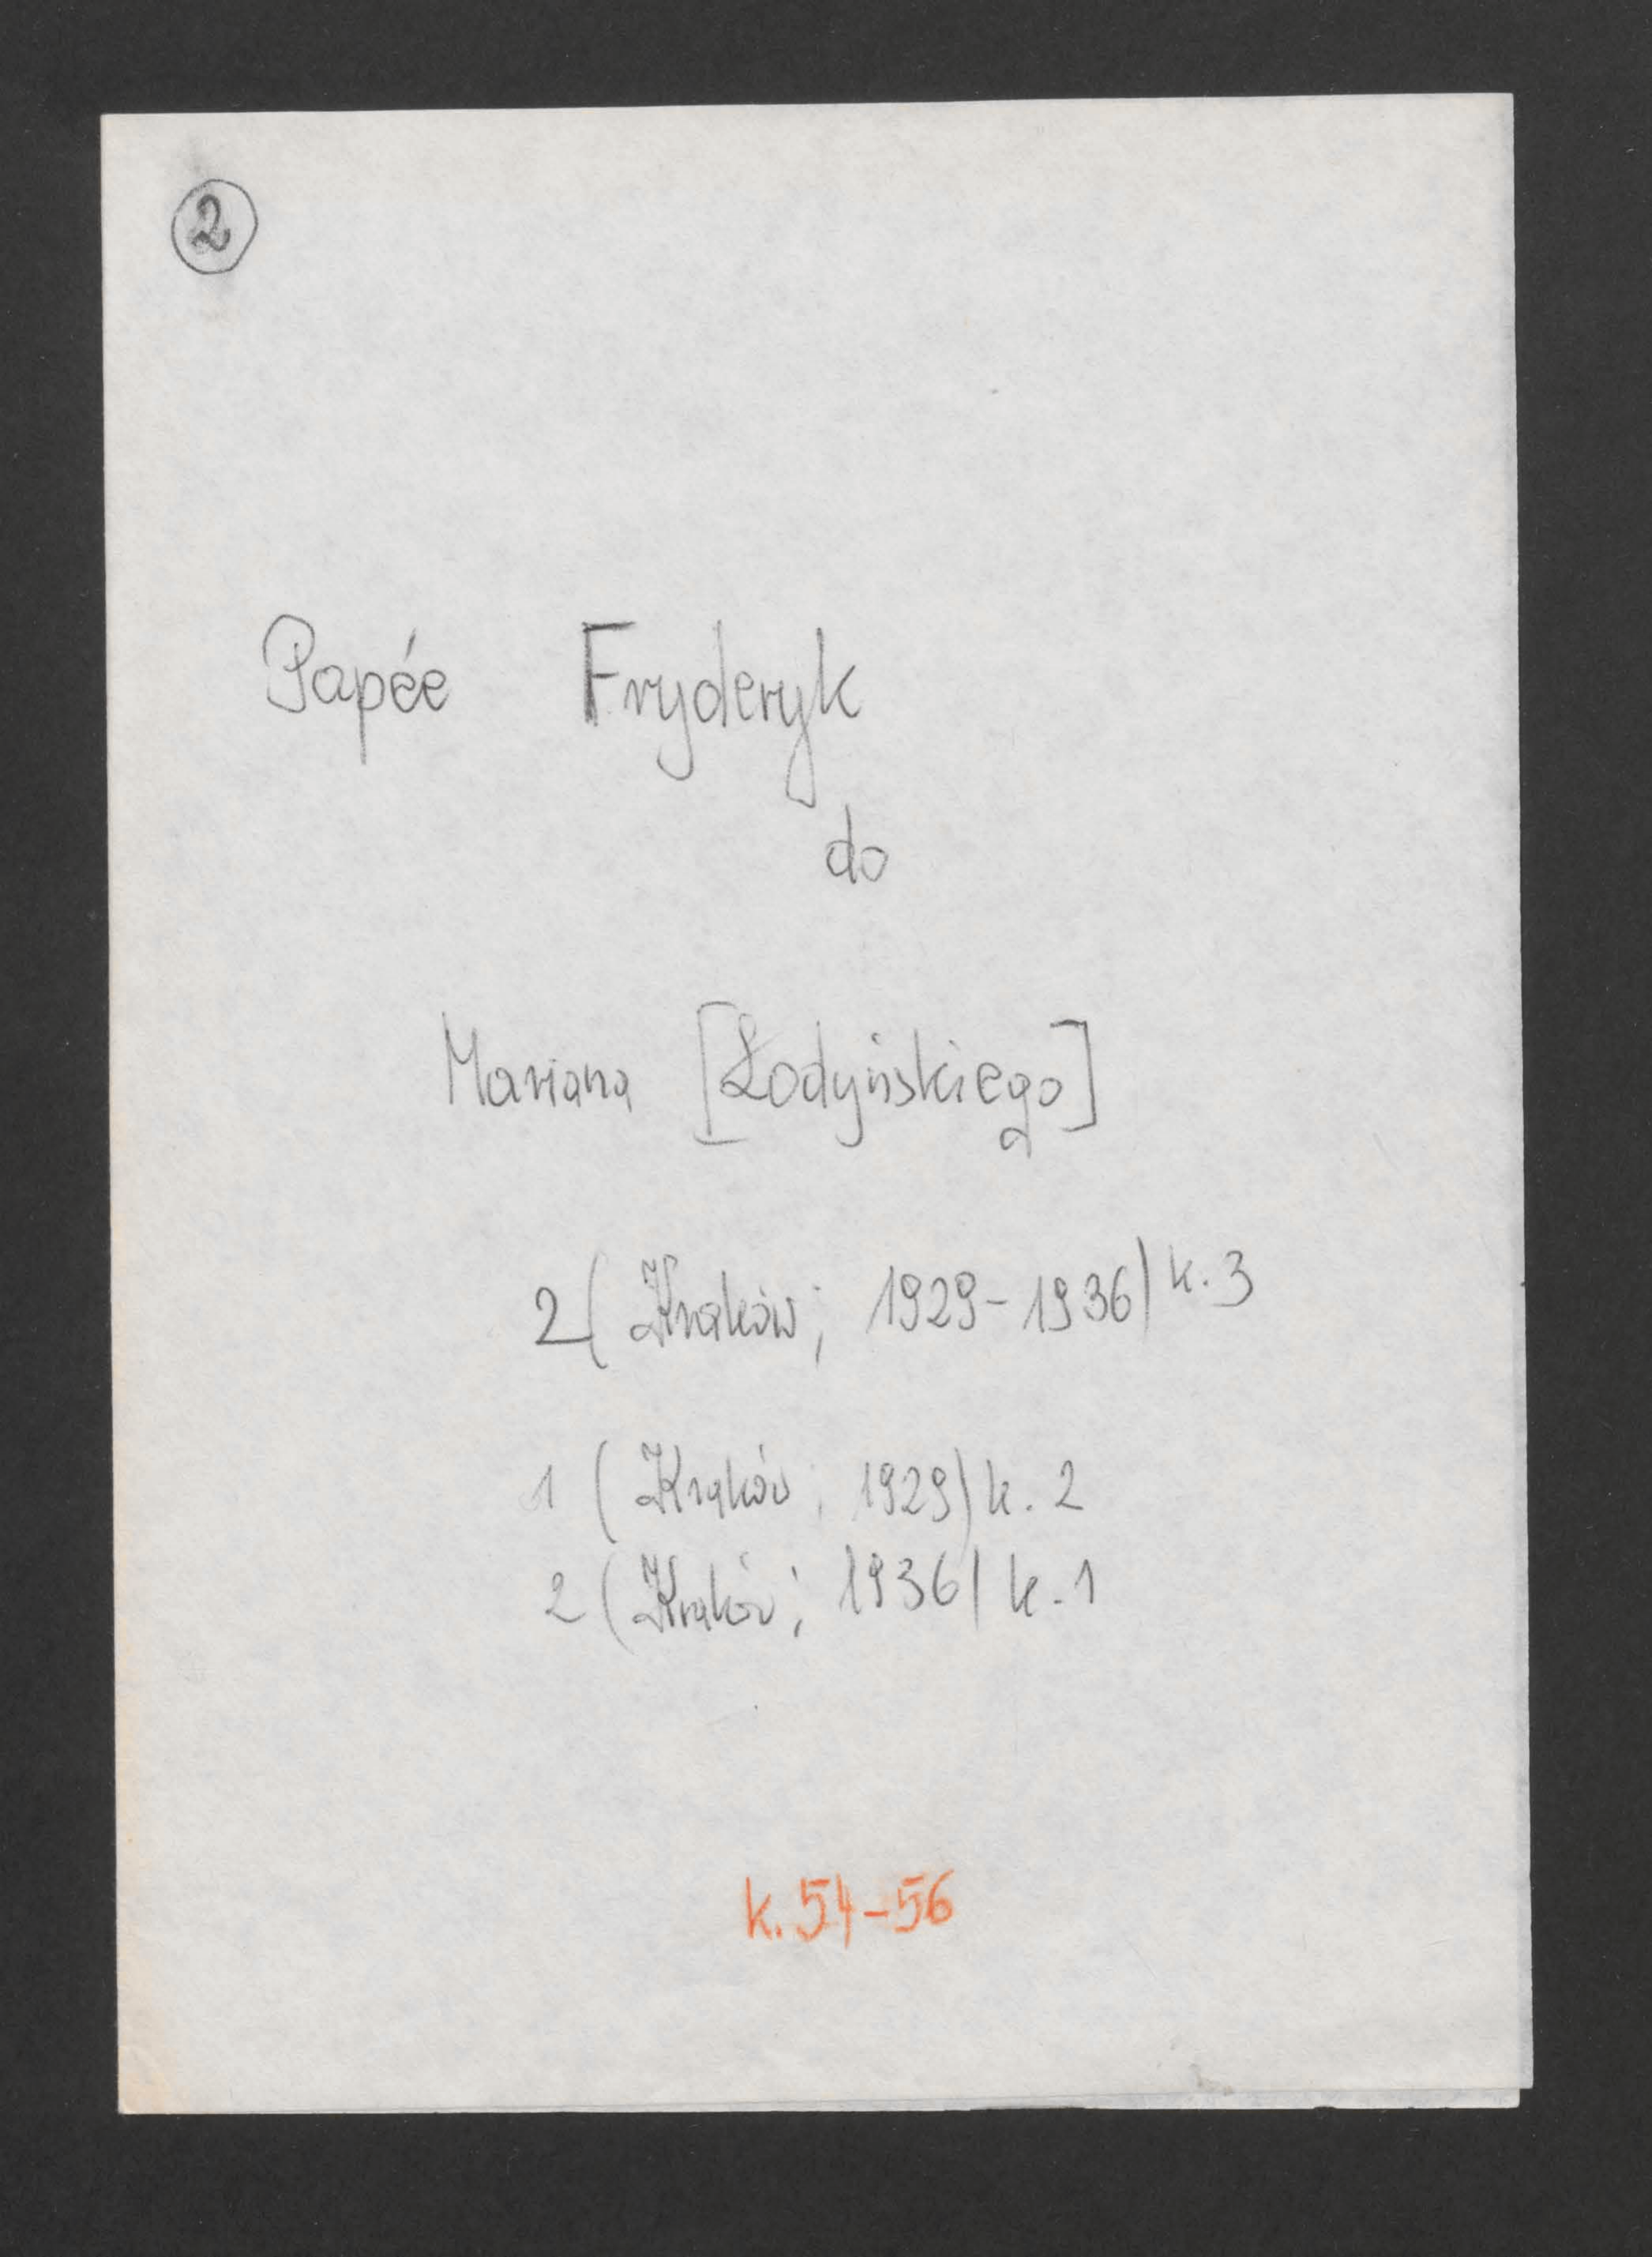 2
Papée Fryderyk
do
Mariana [Łodyńskiego]
2 (Kraków; 1929-1936) k. 3
1 (Kraków; 1929) k. 2
2 (Kraków; 1936) k. 1
k. 54-56